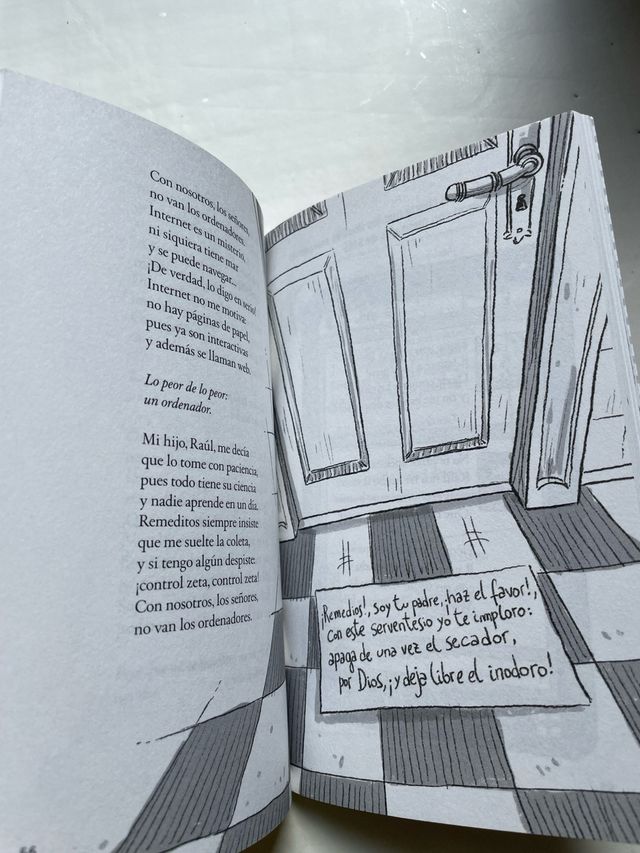 Con nosotros, los señores,
no van los ordenadores.
Internet es un misterio,
ni siquiera tiene mar
y se puede navegar...
¡De verdad, lo digo en serio!
Internet no me motiva:
no hay páginas de papel,
pues ya son interactivas
y además se llaman web.
Lo peor de lo peor:
un ordenador.
Mi hijo, Raúl, me decía
que lo tome con paciencia,
pues todo tiene su ciencia
y nadie aprende en un día.
Remeditos siempre insiste
que me suelte la coleta,
y si tengo algún despiste:
¡control zeta, control zeta!
Con nosotros, los señores,
no van los ordenadores.
¡Remedios!, soy tu padre, ¡haz el favor!,
con este serventesio yo te imploro:
apaga de una vez el secador,
por Dios, ¡y deja libre el inodoro!